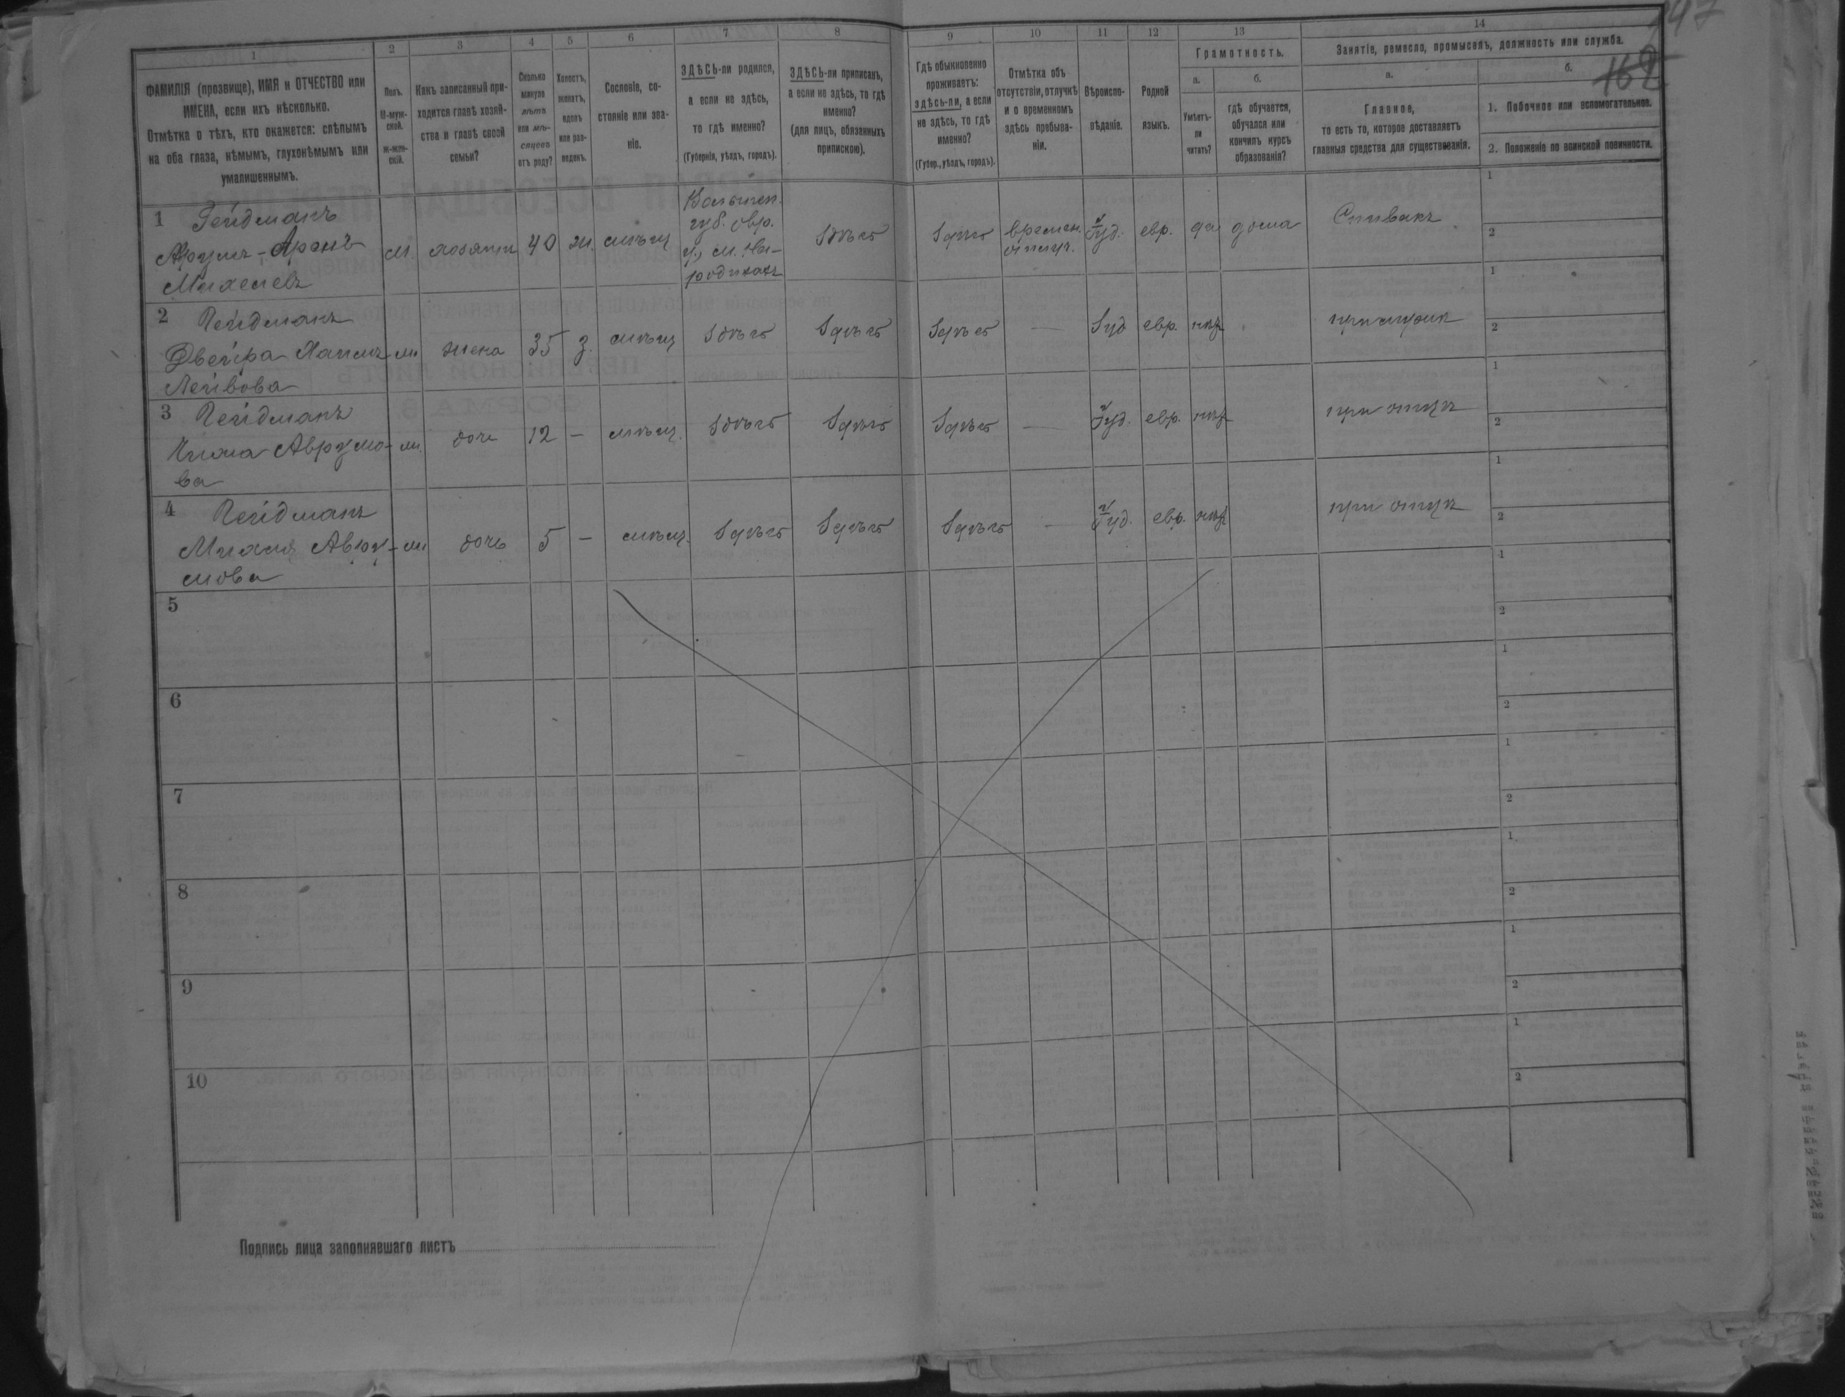 147
162
1
2
3
4
5
6
7
8
9
10
11
12
13
14
ФАМИЛІЯ (прозвище), ИМЯ и ОТЧЕСТВО или
ИМЕНА, если ихъ нѣсколько.
Отмѣтка о тѣхъ, кто окажется: слѣпымъ
на оба глаза, нѣмымъ, глухонѣмымъ или
умалишеннымъ.
Полъ.
М-муж-
ской.
Ж-жен-
скій.
Какъ записанный при-
ходится главѣ хозяй-
ства и главѣ своей
семьи?
Сколько
минуло
лѣтъ
или мѣ-
сяцевъ
отъ роду?
Холостъ,
женатъ,
вдовъ
или раз-
веденъ.
Сословіе, со-
стояніе или зва-
ніе.
ЗДѢСЬ-ли родился,
а если не здѣсь,
то гдѣ именно?
(Губернія, уѣздъ, городъ).
ЗДѢСЬ-ли приписанъ,
а если не здѣсь, то гдѣ
именно?
(для лицъ, обязанныхъ
припискою).
Гдѣ обыкновенно
проживаетъ:
здѣсь-ли, а если
не здѣсь, то гдѣ
именно?
(Губер., уѣздъ, городъ).
Отмѣтка объ
отсутствіи, отлучкѣ
и о временномъ
здѣсь пребыва-
ніи.
Вѣроиспо-
вѣданіе.
Родной
языкъ.
Грамотность.
а.
Умѣетъ-
ли
читать?
б.
гдѣ обучается,
обучался или
кончилъ курсъ
образованія?
Занятіе, ремесло, промыселъ, должность или служба.
а.
Главное,
то есть то, которое доставляетъ
главныя средства для существованія.
б.
1. Побочное или вспомогательное.
2. Положеніе по воинской повинности.
1 Гейдманъ
Аврумъ-Аронъ
Михелевъ
м. хозяинъ 40 ж. мѣщ.
Волынск.
губ. Овр.
у., м. На-
родичахъ
здѣсь здѣсь времен.
отлуч.
Іуд. евр. да дома
1
2
2 Гейдманъ
Двейра
Лейбова
жена 35 з. мѣщ здѣсь здѣсь здѣсь — Іуд евр. нѣт
1
2
3 Гейдманъ
Аврумо-
ва
дочь 12 — мѣщ. здѣсь здѣсь здѣсь — Іуд. евр. нѣт при отцѣ
1
2
4 Гейдманъ
Авру-
мова
дочь 5 — мѣщ. здѣсь здѣсь здѣсь — Іуд. евр. нѣт при отцѣ
1
2
5
1
2
6
1
2
7
1
2
8
1
2
9
1
2
10
1
2
Подпись лица заполнявшаго листъ